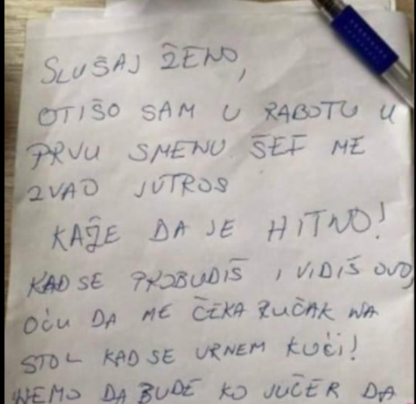 SLUŠAJ ŽENO,
OTIŠO SAM U RABOTU U
PRVU SMENU ŠEF ME
ZVAO JUTROS
KAŽE DA JE HITNO!
KAD SE PROBUDIŠ I VIDIŠ OVO,
OĆU DA ME ČEKA RUČAK NA
STOL KAD SE VRNEM KUĆI!
NEMO DA BUDE KO JUČER DA